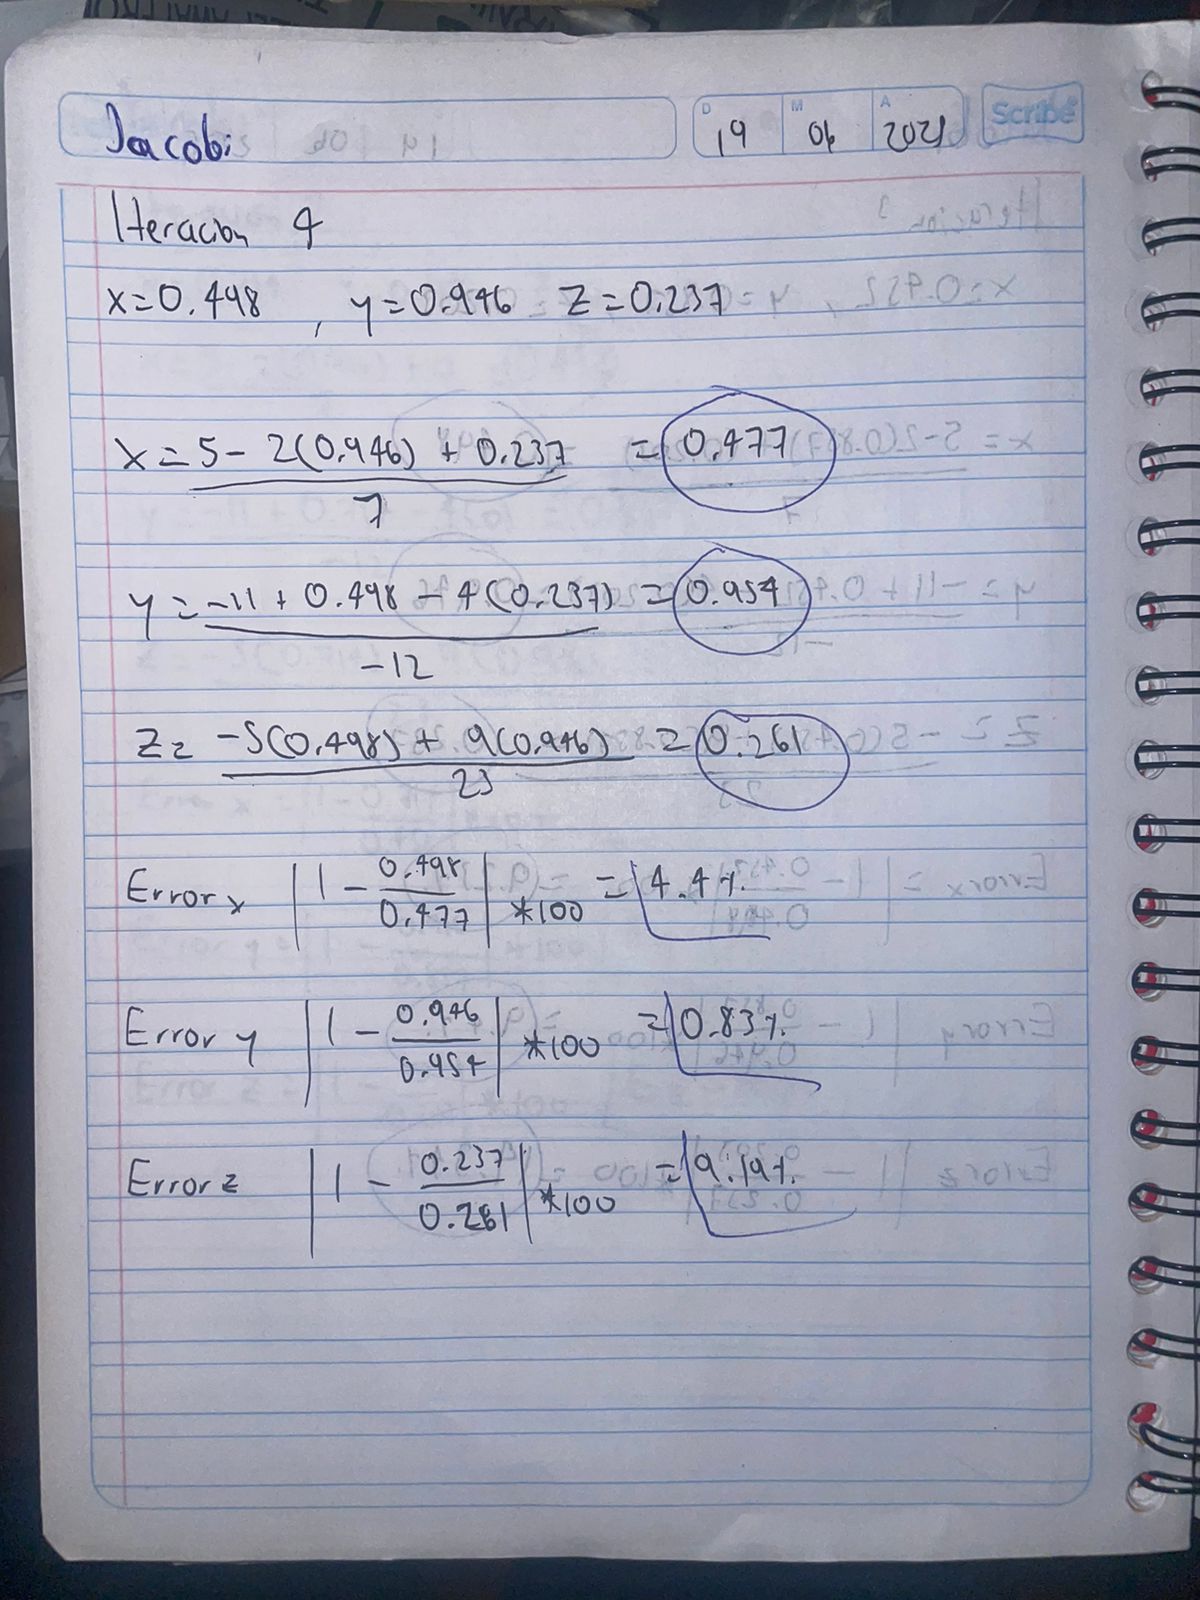 Jacobi
D 19 M 06 A 2021 Scribe
Iteracion 4
x=0.498, y=0.946 z=0.237
x = 5 - 2(0.946) + 0.237 = 0.477
7
y = -11 + 0.498 - 4(0.237) = 0.954
-12
z = -5(0.498) + 9(0.946) = 0.261
23
Error x |1 - 0.498/0.477| *100 = 4.4%
Error y |1 - 0.946/0.954| *100 = 0.83%
Error z |1 - 0.237/0.261| *100 = 9.19%